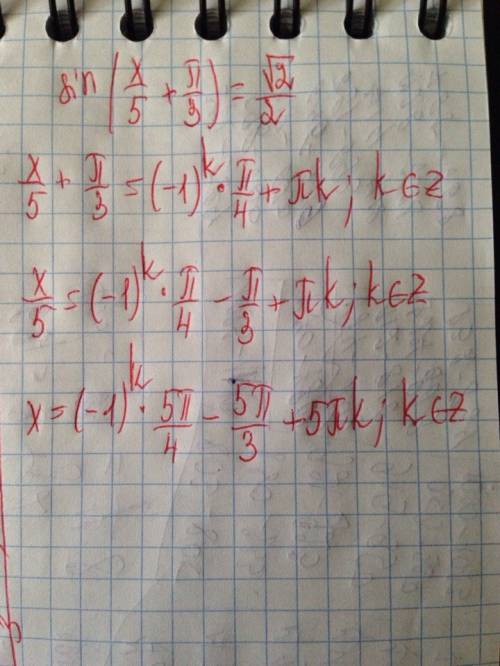 sin(x/5 + π/3) = √2/2
x/5 + π/3 = (-1)^k · π/4 + πk; k∈z
x/5 = (-1)^k · π/4 - π/3 + πk; k∈z
x = (-1)^k · 5π/4 - 5π/3 + 5πk; k∈z